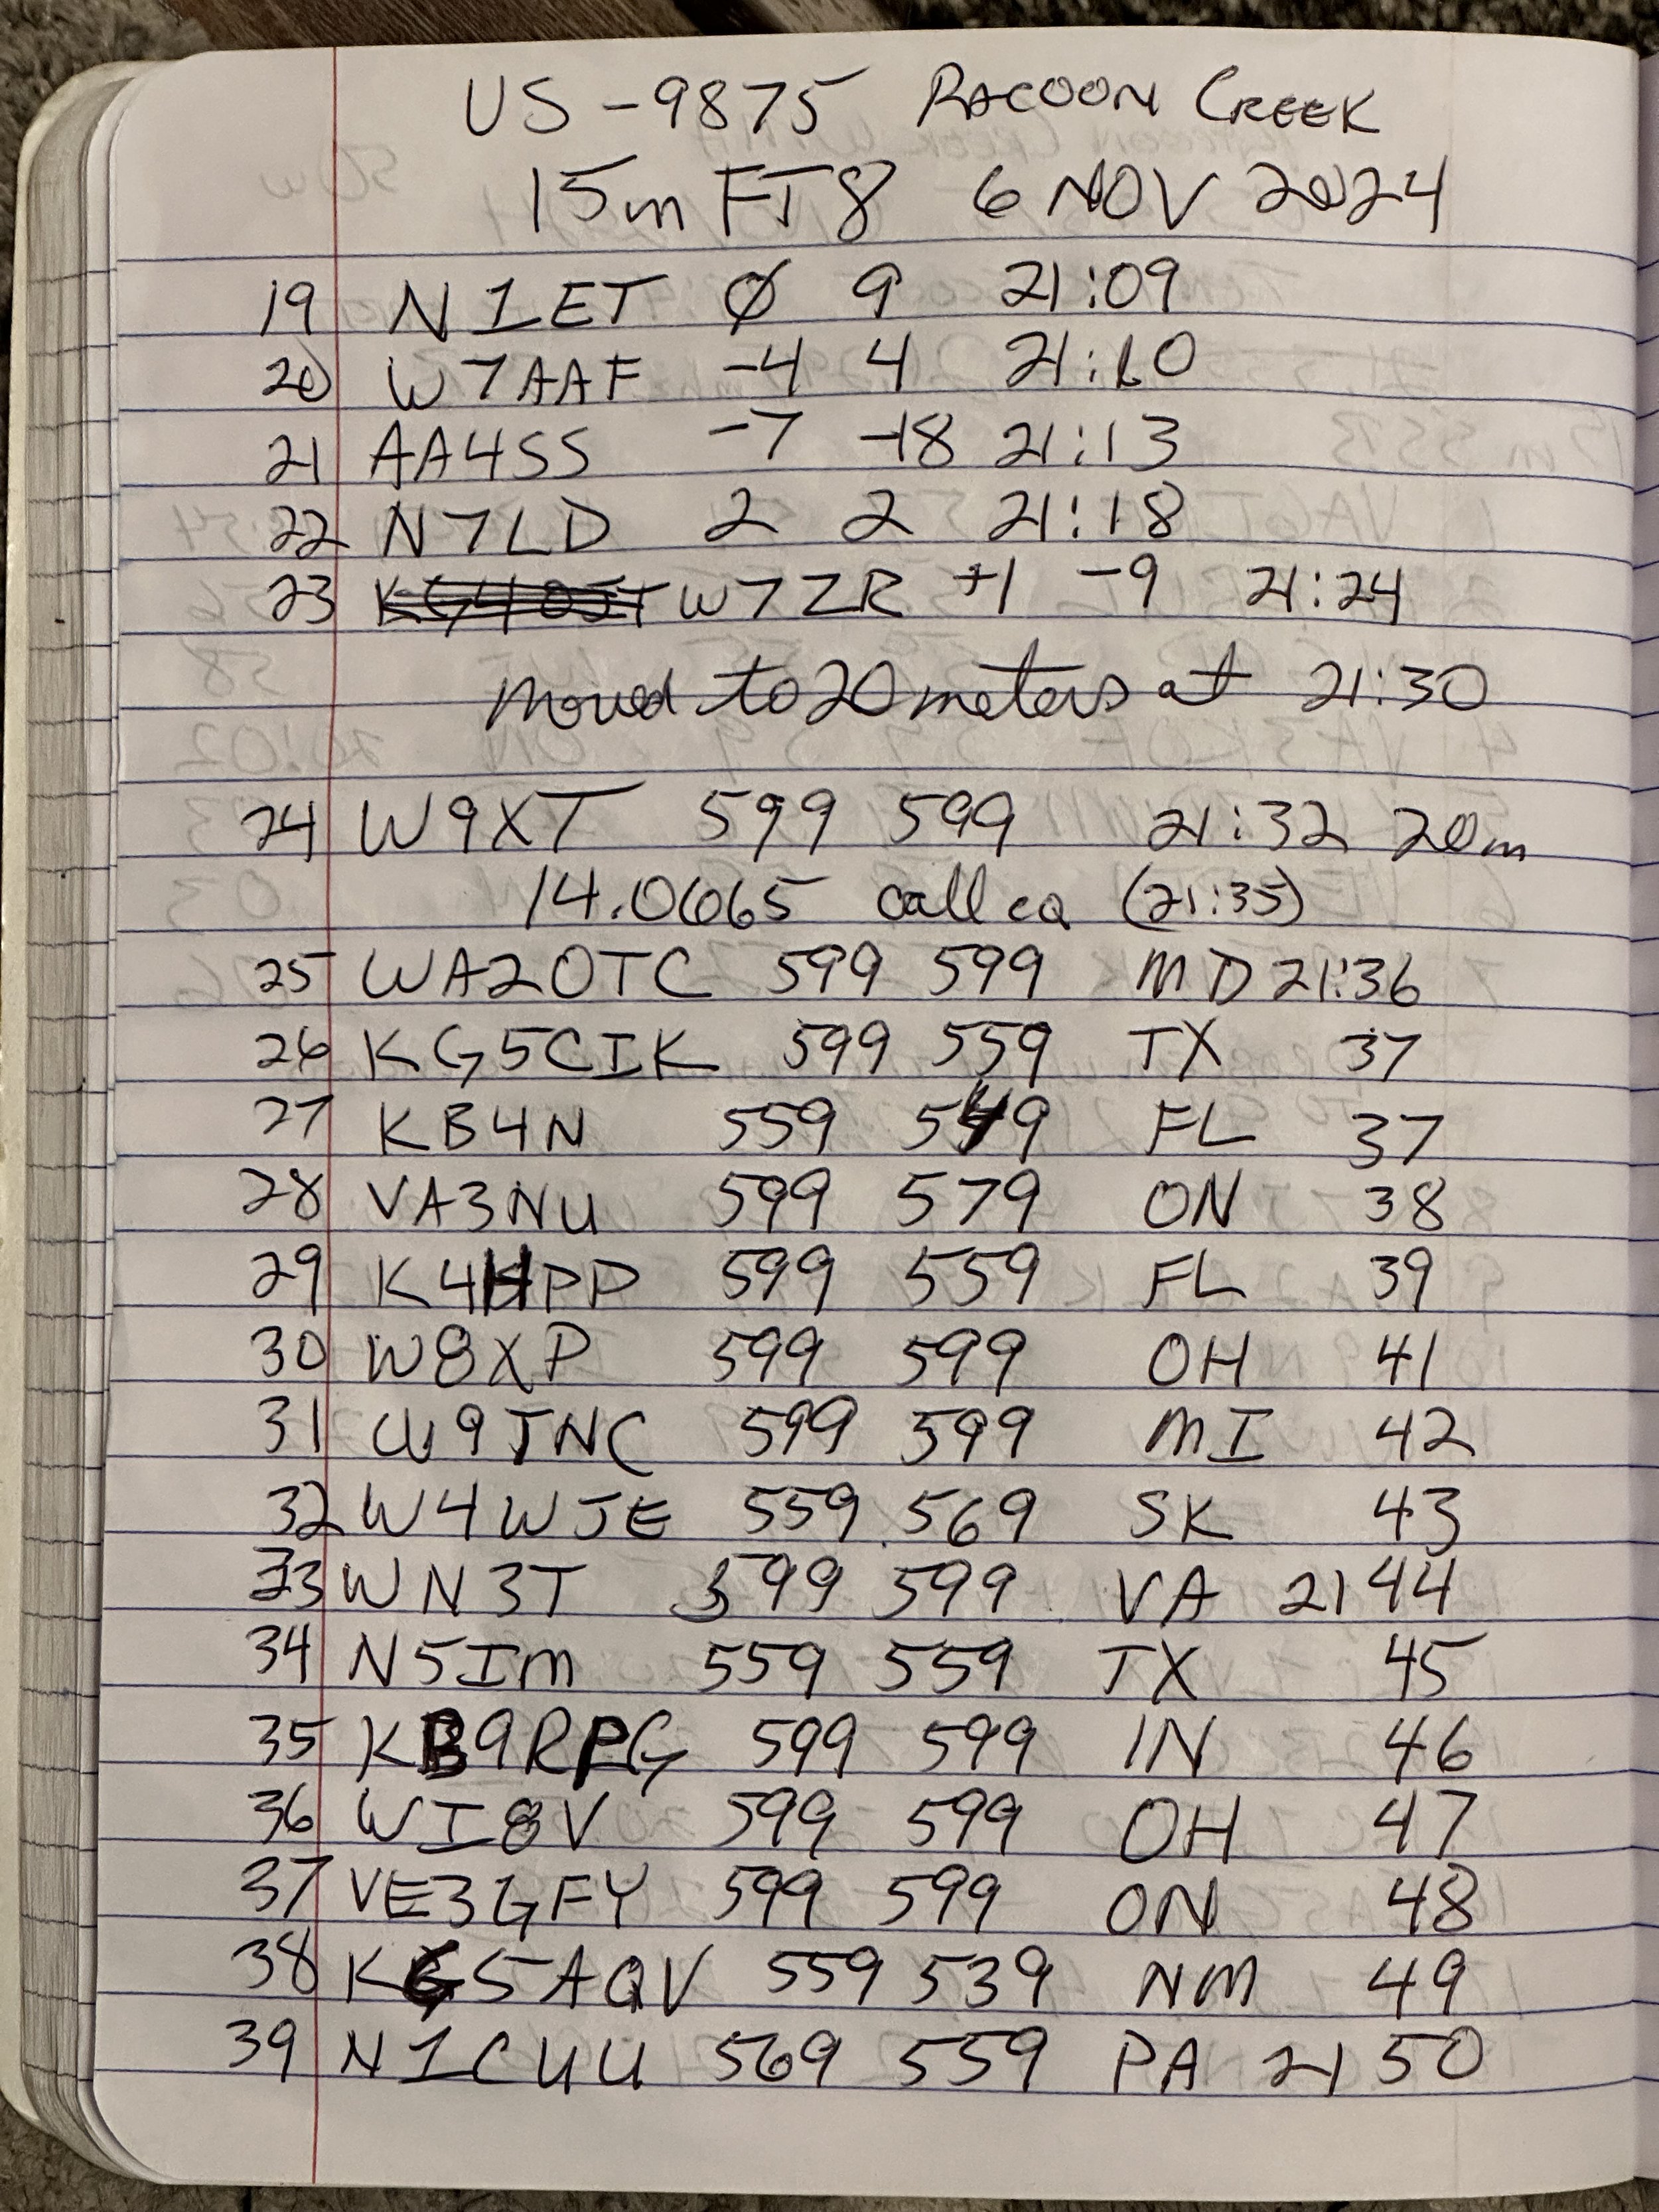 US-9875 RACOON CREEK
15m FT8 6 NOV 2024
19 N1ET Ø 9 21:09
20 W7AAF -4 4 21:10
21 AA4SS -7 -18 21:13
22 N7LD 2 2 21:18
23 W7ZR +1 -9 21:24
moved to 20 meters at 21:30
24 W9XT 599 599 21:32 20m
14.0665 call cq (21:35)
25 WA2OTC 599 599 MD 21:36
26 KG5CIK 599 559 TX 37
27 KB4N 559 549 FL 37
28 VA3NU 599 579 ON 38
29 K4HPP 599 559 FL 39
30 W8XP 599 599 OH 41
31 W9JNC 599 599 MI 42
32 W4WJE 559 569 SK 43
33 WN3T 599 599 VA 21 44
34 N5IM 559 559 TX 45
35 KB9RPG 599 599 IN 46
36 WI8V 599 599 OH 47
37 VE3GFY 599 599 ON 48
38 KG5AQV 559 539 NM 49
39 N1CUU 569 559 PA 21 50